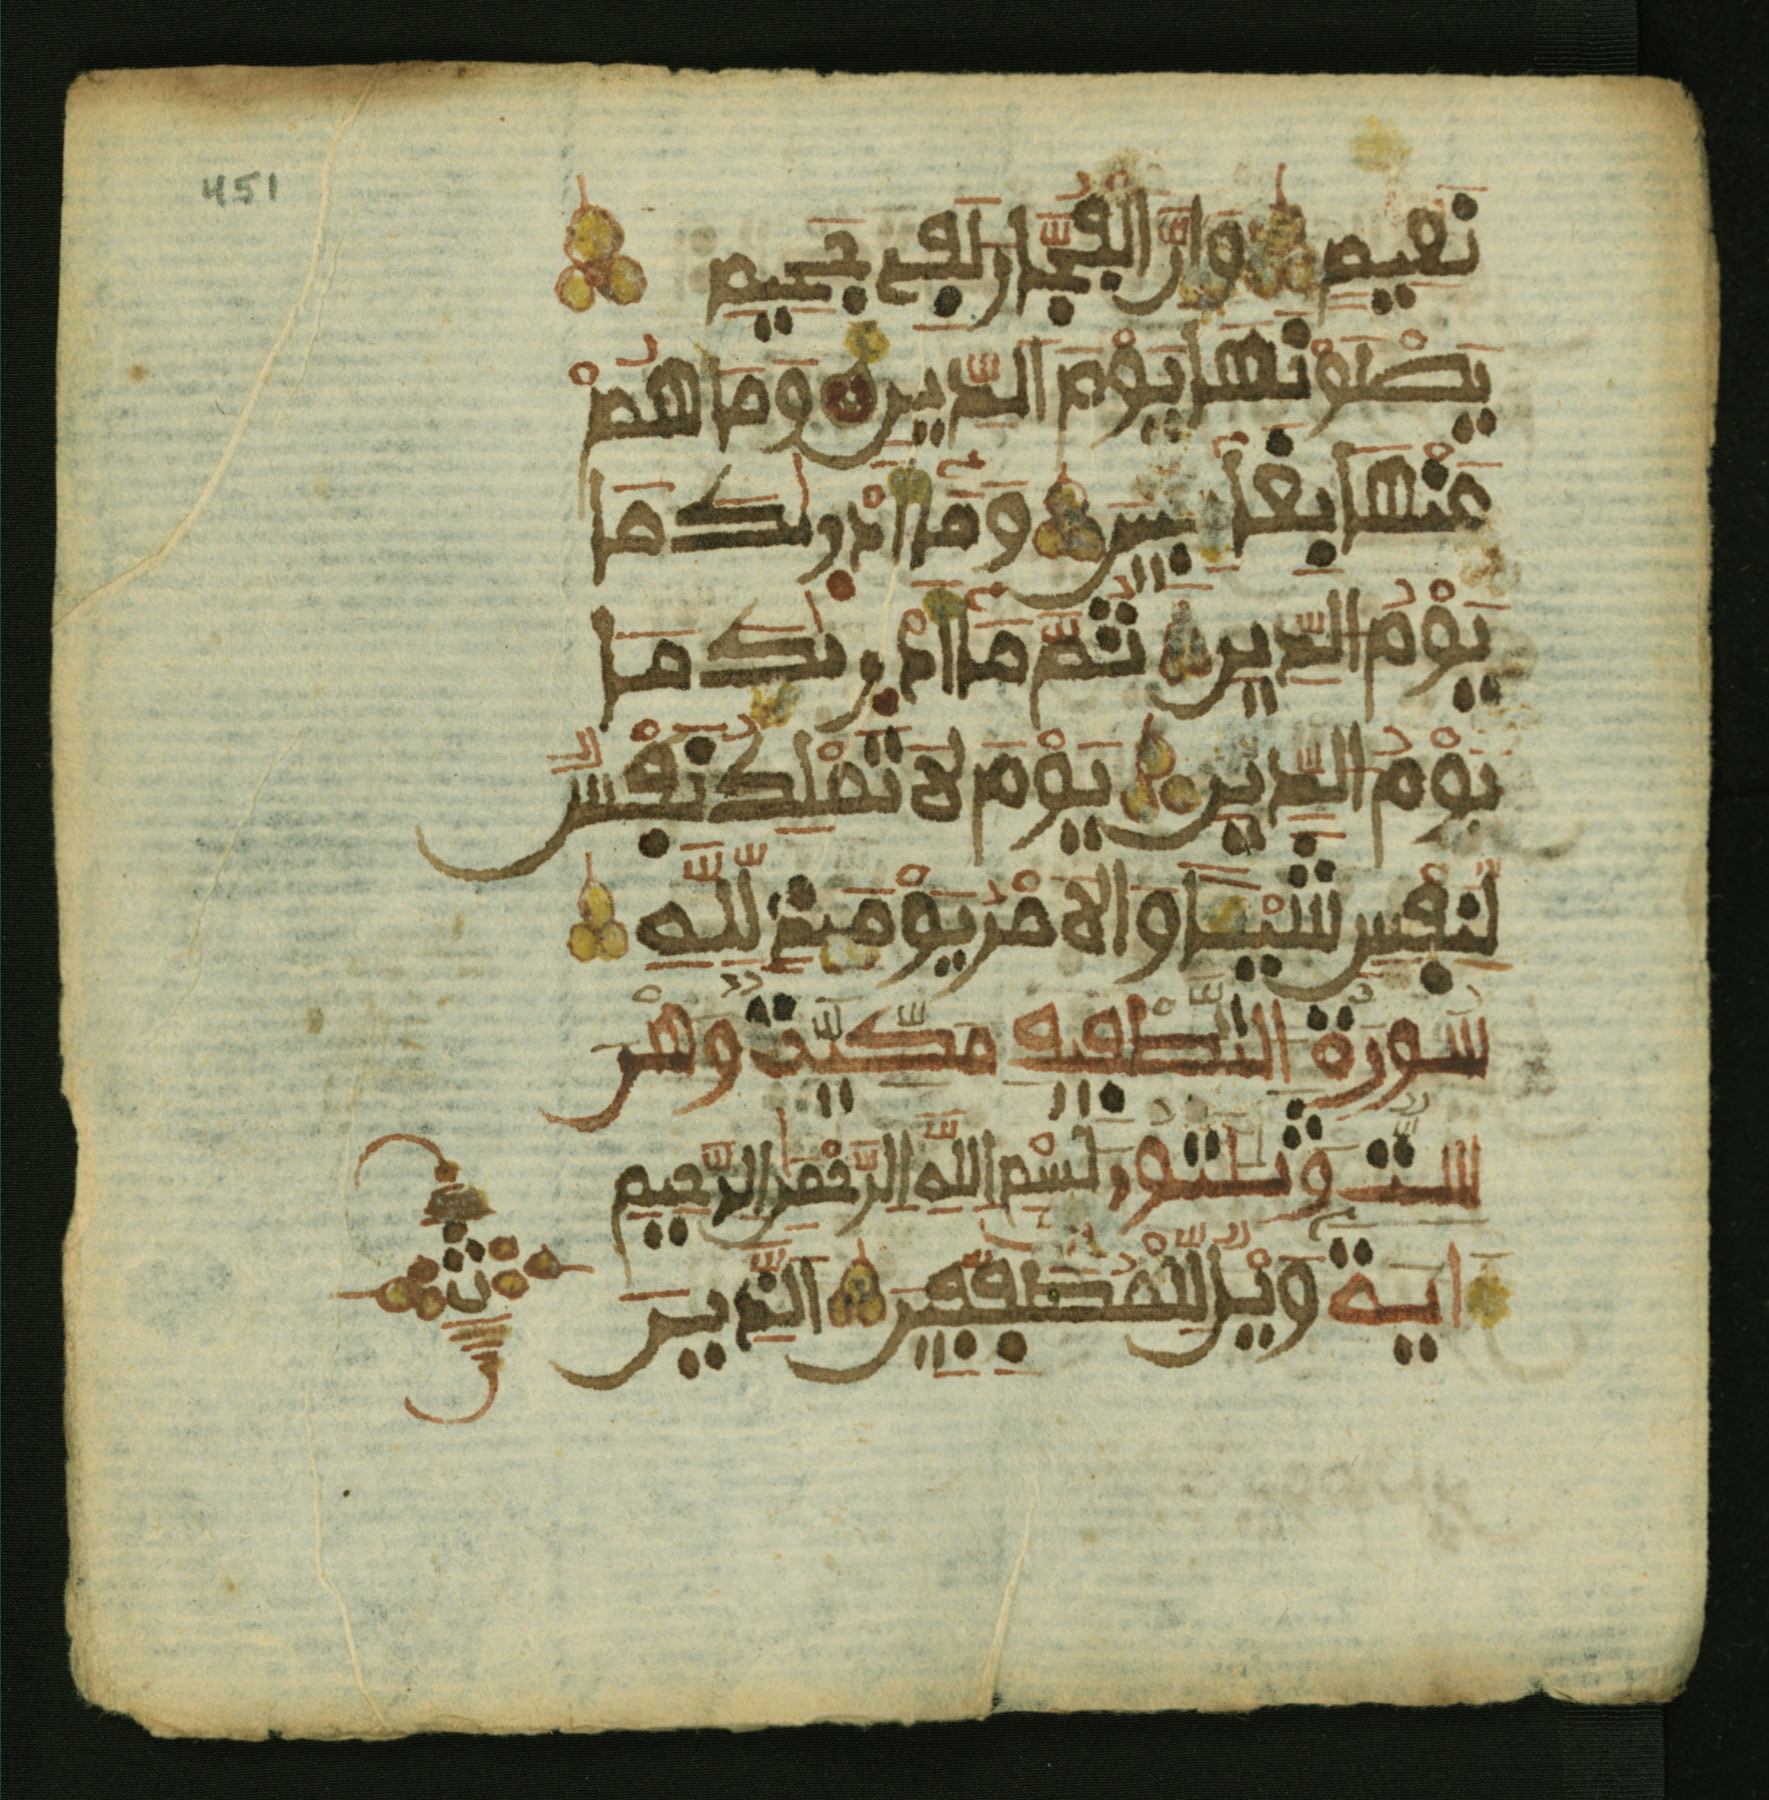 451
نَعِيمٍ وَإِنَّ الْفُجَّارَ لَفِي جَحِيمٍ
يَصْلَوْنَهَا يَوْمَ الدِّينِ وَمَا هُمْ
عَنْهَا بِغَآئِبِينَ وَمَآ أَدْرَىٰكَ مَا
يَوْمُ الدِّينِ ثُمَّ مَآ أَدْرَىٰكَ مَا
يَوْمُ الدِّينِ يَوْمَ لَا تَمْلِكُ نَفْسٌ
لِّنَفْسٍ شَيْـًٔا وَالْأَمْرُ يَوْمَئِذٍ لِّلَّهِ
سُورَةُ التَّطْفِيفِ مَكِّيَّةٌ وَهْيَ
سِتٌّ وَثَلَٰثُونَ بِسْمِ اللَّهِ الرَّحْمَٰنِ الرَّحِيمِ
ايَةً وَيْلٌ لِّلْمُطَفِّفِينَ الَّذِينَ